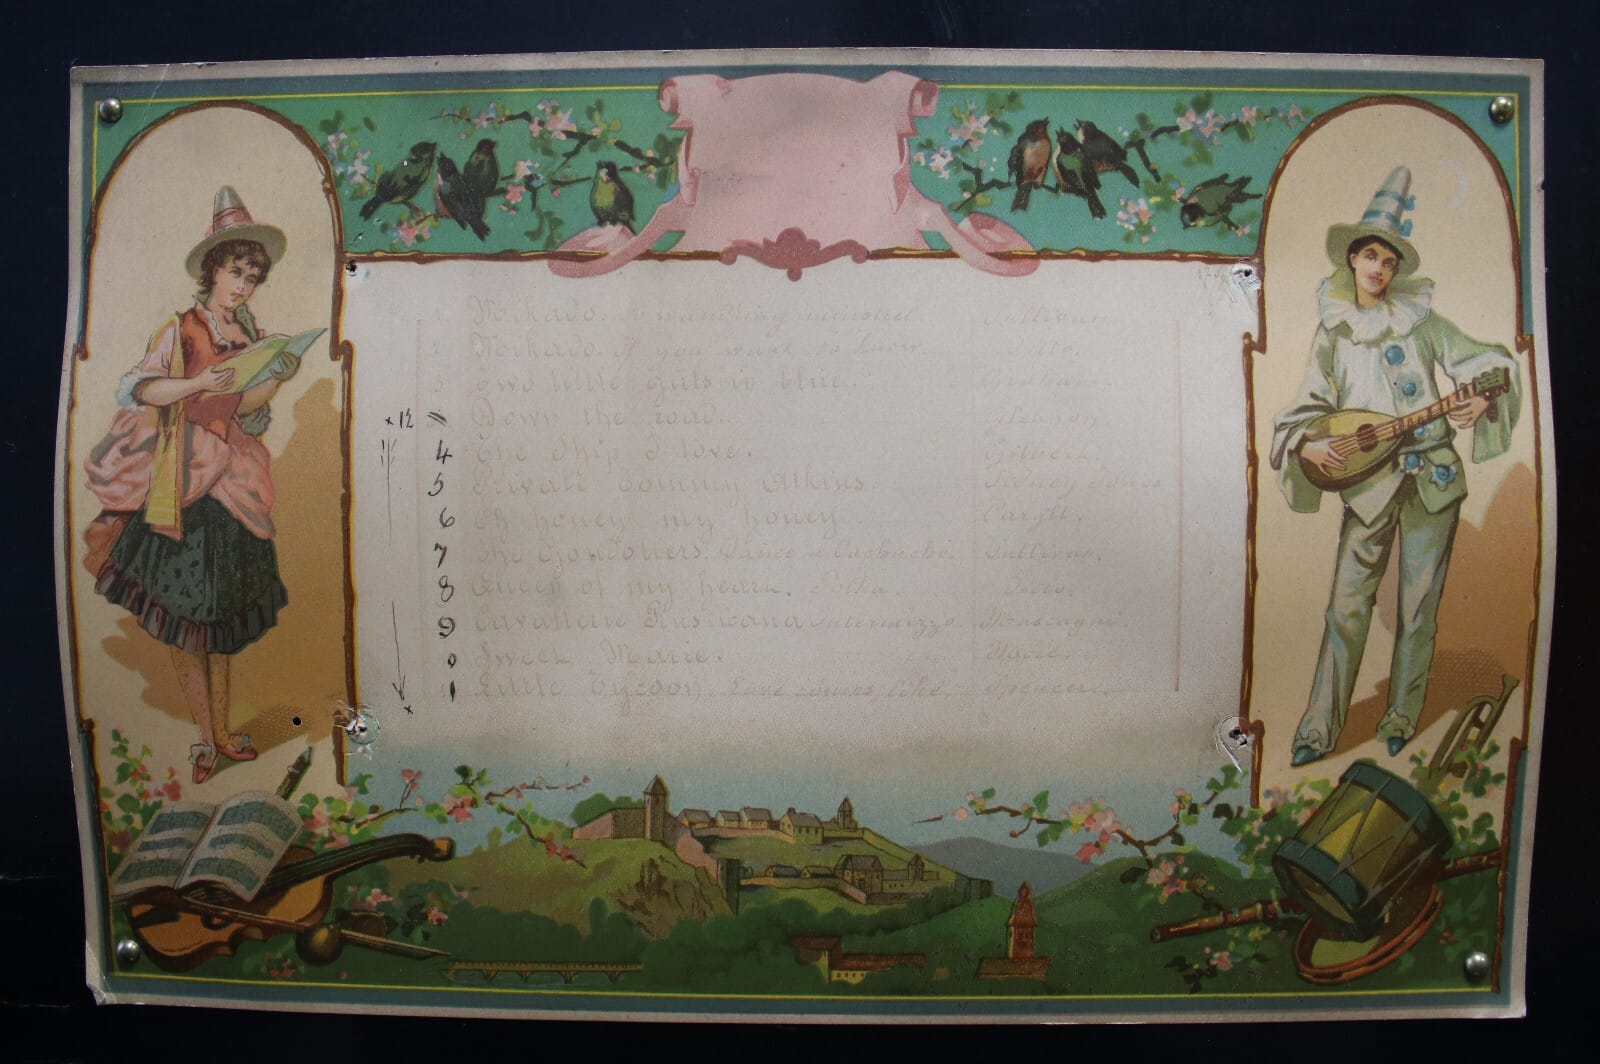 1 Mikado. A wandering minstrel. Sullivan.
2 Mikado. If you want to know Ditto.
3 Two little girls in blue. Graham
x 12 Down the road.
4 The Ship I love.
5 Private Tommy Atkins. Sidney Jones
6 Oh honey my honey Caryll.
7 The Gondoliers. Dance a Cachucha. Sullivan.
8 Queen of my heart. Polka.
9 Cavallerie Rusticana Intermezzo Mascagni
0 Sweet Marie. Moore.
1 Little Tycoon. Love comes like. Spencer.
x